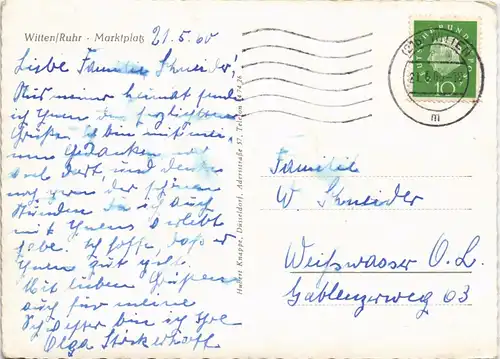 Witten/Ruhr - Marktplatz 21.5.60
Liebe Familie Schneider!
Aus meiner Heimat sende
ich Ihnen die herzlichsten
Grüße. Ich bin mit mei-
nen Gedanken
noch dort, und denke
noch gern der schönen
Stunden die ich auch
mit Ihnen erlebt
habe. Ich hoffe, daß es
Ihnen gut geht.
Mit lieben Grüßen
auch für meine
Schwester bin ich Ihre
Olga Stockerhoff
Hubert Knappe, Düsseldorf, Adersstraße 57, Telefon
WITTEN
10
m
Familie
W Schneider
Weißwasser O.L.
Gablenzerweg 03